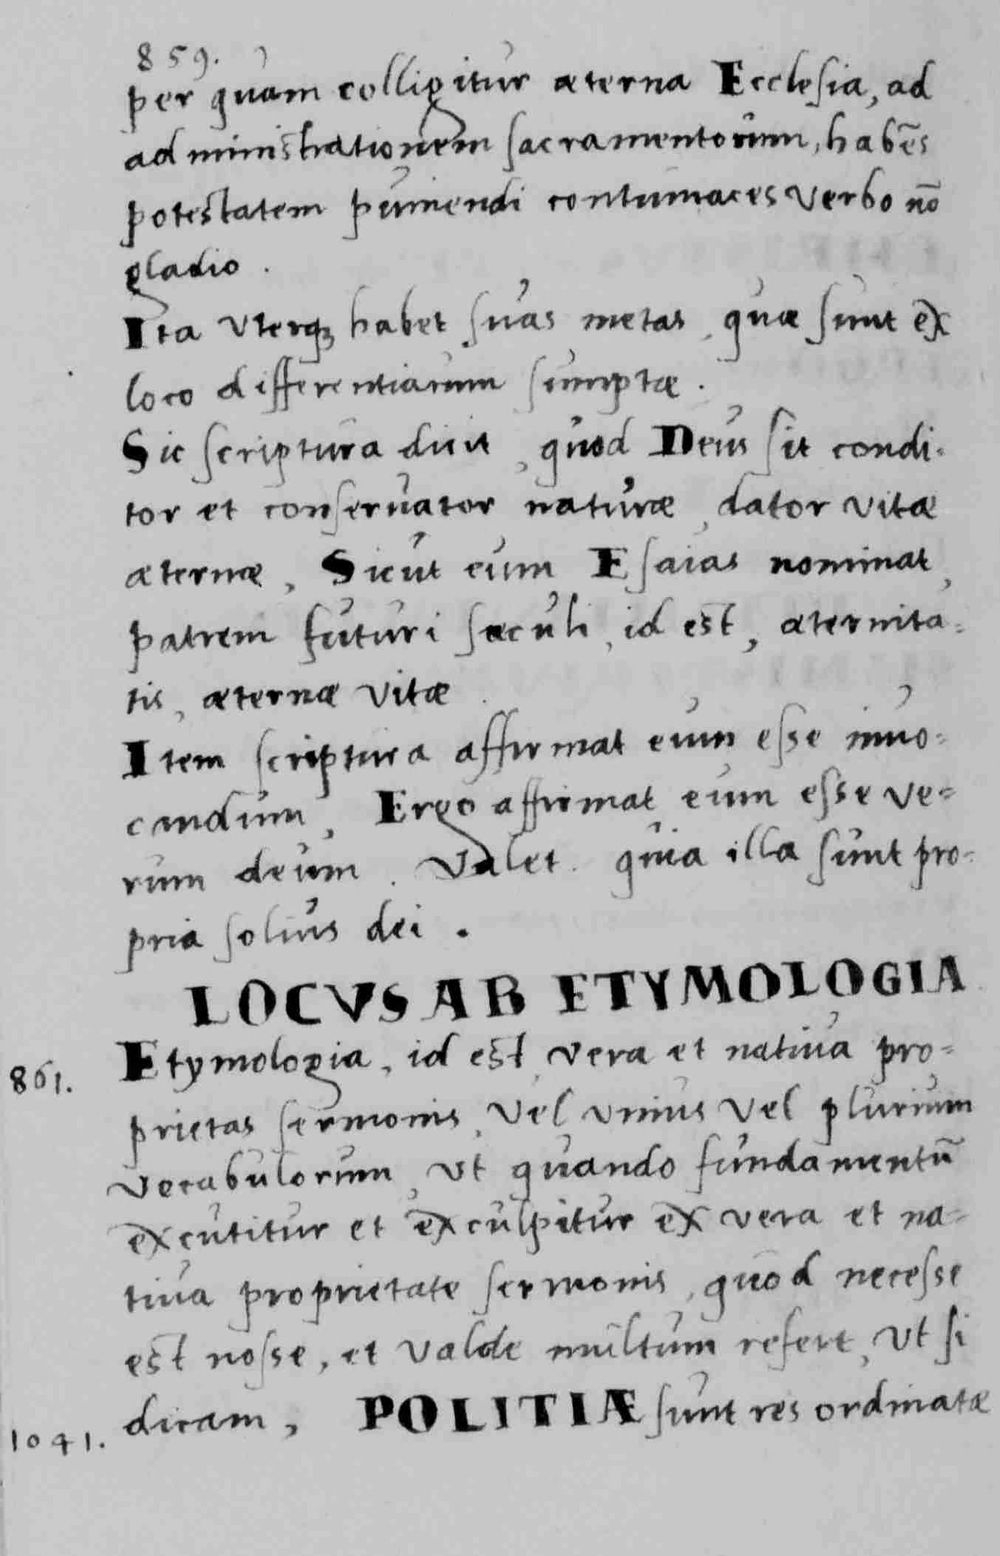 859.
per quam colligitur æterna Ecclesia, ad
administrationem sacramentorum, habēs
potestatem puniendi contumaces verbo nō
gladio.
Ita vterq; habet suas metas, quæ sunt ex
loco differentiarum sumptæ.
Sic scriptura dicit, quod Deus sit condi-
tor et conseruator naturæ, dator vitæ
æternæ, Sicut eum Esaias nominat,
patrem futuri sæculi, id est, æternita-
tis, æternæ vitæ
Item scriptura affirmat eum esse inuo-
candum, Ergo affirmat eum esse ve-
rum deum. Valet. quia illa sunt pro-
pria solius dei.
LOCVS AB ETYMOLOGIA
Etymologia, id est, vera et natiua pro-
861.
prietas sermonis, vel vnius vel plurium
vocabulorum, vt quando fundamentū
excutitur et exculpitur ex vera et na-
tiua proprietate sermonis, quod necesse
est nosse, et valde multum refert, vt si
dicam, POLITIÆ sunt res ordinatæ
1041.